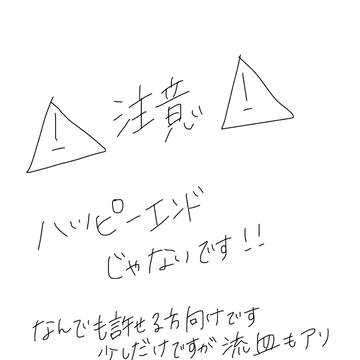 注意
ハッピーエンド
じゃないです!!
なんでも許せる方向けです
少しだけですが流血もアリ